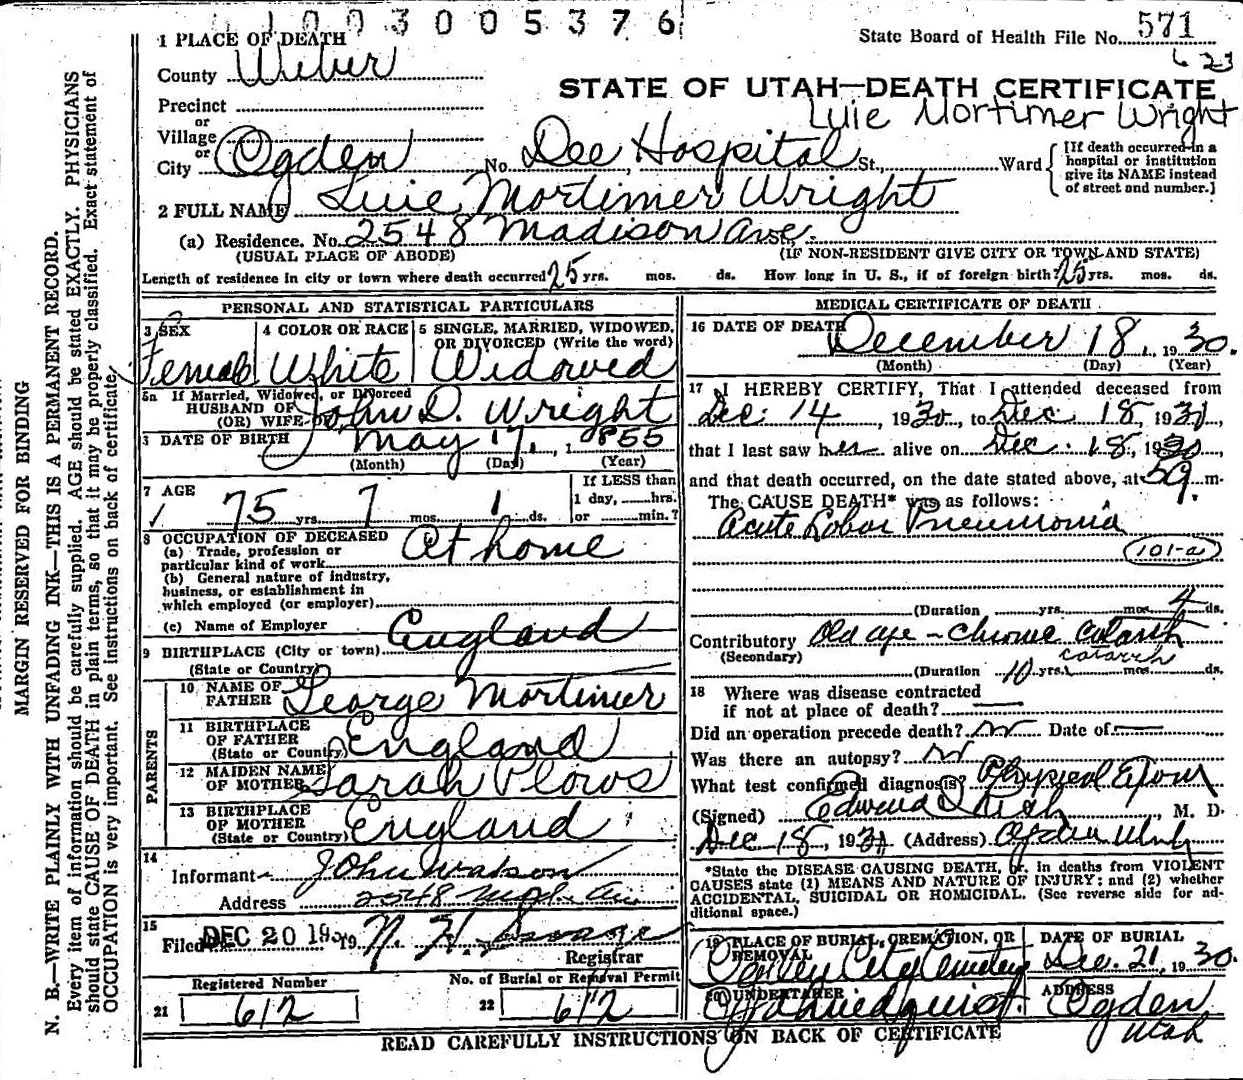 1003005376
State Board of Health File No. 571
623
1 PLACE OF DEATH
County Weber
STATE OF UTAH—DEATH CERTIFICATE
Precinct
Mortimer Wright
or
Village
or
City Ogden No. Dee Hospital St., Ward
[If death occurred in a hospital or institution give its NAME instead of street and number.]
2 FULL NAME Mortimer Wright
(a) Residence. No. 2548 Madison Ave.
(USUAL PLACE OF ABODE) (IF NON-RESIDENT GIVE CITY OR TOWN AND STATE)
Length of residence in city or town where death occurred 25 yrs. mos. ds. How long in U. S., if of foreign birth? 25 yrs. mos. ds.
PERSONAL AND STATISTICAL PARTICULARS
3 SEX
Female
4 COLOR OR RACE
White
5 SINGLE, MARRIED, WIDOWED, OR DIVORCED (Write the word)
Widowed
5a If Married, Widowed, or Divorced
HUSBAND OF
(OR) WIFE OF John D. Wright
DATE OF BIRTH May 17, 1855
(Month) (Day) (Year)
7 AGE
75 yrs. 7 mos. 1 ds.
If LESS than
1 day, hrs.
or min.?
8 OCCUPATION OF DECEASED
(a) Trade, profession or
particular kind of work At home
(b) General nature of industry,
business, or establishment in
which employed (or employer)
(c) Name of Employer
9 BIRTHPLACE (City or town) England
(State or Country)
PARENTS
10 NAME OF FATHER George Mortimer
11 BIRTHPLACE OF FATHER (State or Country) England
12 MAIDEN NAME OF MOTHER Sarah Plows
13 BIRTHPLACE OF MOTHER (State or Country) England
14
Informant John Watson
Address 2548
15
Filed DEC 20 19 N. H.
Registrar
Registered Number
21 612
No. of Burial or Removal Permit
22 612
MEDICAL CERTIFICATE OF DEATH
16 DATE OF DEATH December 18, 1930.
(Month) (Day) (Year)
17 I HEREBY CERTIFY, That I attended deceased from
Dec. 14, 1930, to Dec. 18, 193
that I last saw her alive on Dec. 18, 1930,
and that death occurred, on the date stated above, at m.
The CAUSE DEATH* was as follows:
Acute Lobar Pneumonia
101-a
(Duration yrs. mos. 4 ds.
Contributory Old age - Chronic Catarrh
(Secondary) catarrh
(Duration 10 yrs. mos. ds.
18 Where was disease contracted
if not at place of death?
Did an operation precede death? Date of
Was there an autopsy?
What test confirmed diagnosis? Physical Exam
(Signed) M. D.
Dec 18, 193 (Address) Ogden Utah
*State the DISEASE CAUSING DEATH, or, in deaths from VIOLENT
CAUSES state (1) MEANS AND NATURE OF INJURY; and (2) whether
ACCIDENTAL, SUICIDAL OR HOMICIDAL. (See reverse side for ad-
ditional space.)
19 PLACE OF BURIAL, CREMATION, OR REMOVAL
Ogden City Cemetery
DATE OF BURIAL
Dec. 21, 1930.
20 UNDERTAKER
ADDRESS
Ogden
Utah
READ CAREFULLY INSTRUCTIONS ON BACK OF CERTIFICATE
MARGIN RESERVED FOR BINDING
N. B.—WRITE PLAINLY WITH UNFADING INK—THIS IS A PERMANENT RECORD.
Every item of information should be carefully supplied. AGE should be stated EXACTLY. PHYSICIANS
should state CAUSE OF DEATH in plain terms, so that it may be properly classified. Exact statement of
OCCUPATION is very important. See instructions on back of certificate.